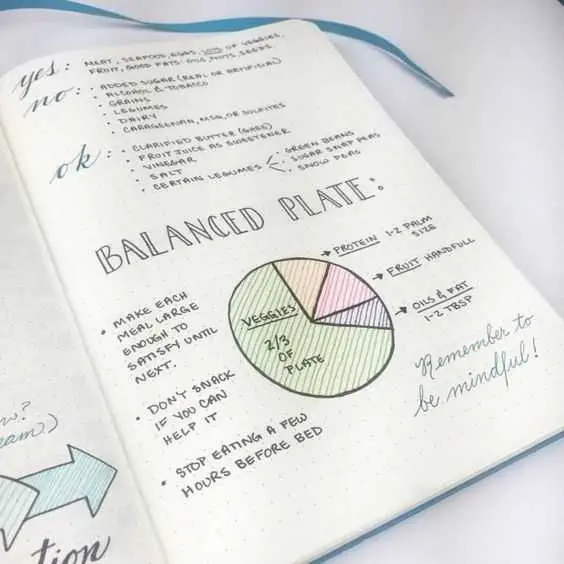 yes: MEAT, SEAFOOD, EGGS, LOTS OF VEGGIES,
FRUIT, GOOD FATS: OILS, NUTS, SEEDS.
no: • ADDED SUGAR (REAL OR ARTIFICIAL)
• ALCOHOL & TOBACCO
• GRAINS
• LEGUMES
• DAIRY
• CARAGEENAN, MSG, OR SULFITES
ok: • CLARIFIED BUTTER (GHEE)
• FRUIT JUICE AS SWEETENER
• VINEGAR
• SALT
• CERTAIN LEGUMES
• GREEN BEANS
• SUGAR SNAP PEAS
• SNOW PEAS
BALANCED PLATE:
→ PROTEIN 1-2 PALM
SIZE
→ FRUIT HANDFULL
→ OILS & FAT
1-2 TBSP
VEGGIES
2/3
OF
PLATE
• MAKE EACH
MEAL LARGE
ENOUGH TO
SATISFY UNTIL
NEXT.
• DON'T SNACK
IF YOU CAN
HELP IT
• STOP EATING A FEW
HOURS BEFORE BED
Remember to
be mindful!